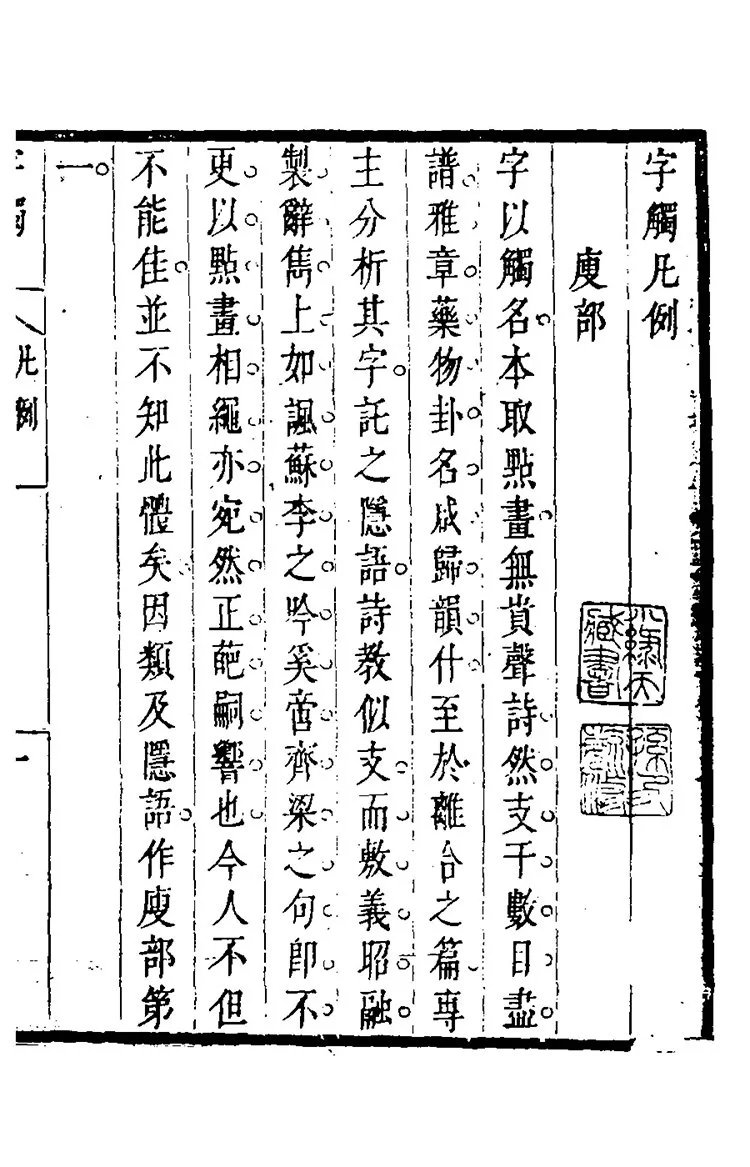 字觸凡例
廋部
字以觸名本取點畫無貴聲詩然支干數目盡
譜雅章藥物卦名咸歸韻什至於離合之篇專
主分析其字託之隱語詩教似支而敷義昭融
製辭雋上如諷蘇李之吟奚啻齊梁之句卽不
更以點畫相繩亦宛然正葩嗣響也今人不但
不能佳並不知此體矣因類及隱語作廋部第
一
字觸
凡例
一